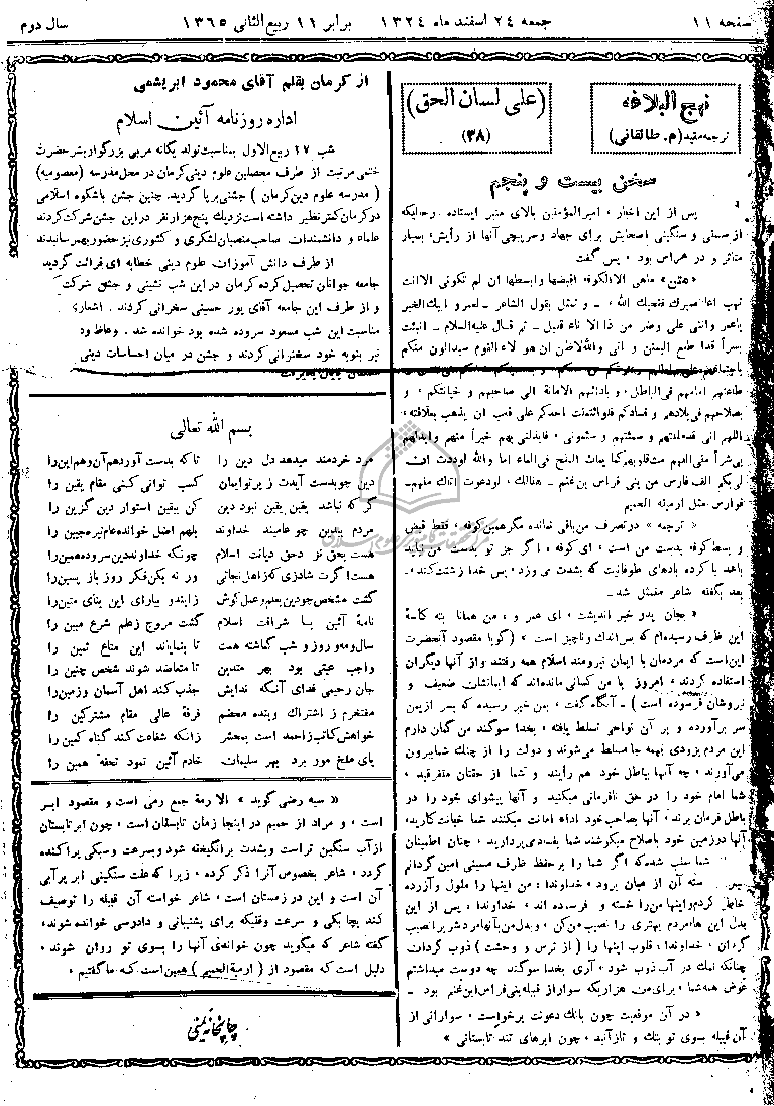 صفحه ۱۱
جمعه ۲۴ اسفند ماه ۱۳۲۴
برابر ۱۱ ربیع الثانی ۱۳۶۵
سال دوم
نهج البلاغه
ترجمه مقید (م. طالقانی)
(علی لسان الحق)
(۳۸)
سخن بیست و پنجم
پس از این اخبار ، امیرالمؤمنین بالای منبر ایستاده درحالیکه
از سستی و سنگینی اصحابش برای جهاد و سرپیچی آنها از رأیش، بسیار
متأثر و در هم راس بود ، پس گفت
«متن» ماهی الا الکوفه اقبضها وابسطها ان لم تکونی الا انت
تهب اعاصیرک فقبحک الله ، ـ و تمثل بقول الشاعر ـ لعمر و ابیک الخیر
یاعمر واننی علی وضر من ذا الا ناء قلیل ـ ثم قال علیه السلام ـ انبئت
بسراً قد اطلع الیمن و انی والله لاظن ان هو لاء القوم سیدالون منکم
طاعتهم امامهم فی الباطل ، و بادائهم الامانة الی صاحبهم و خیانتکم ، و
بصلاحهم فی بلادهم و فسادکم فلو ائتمنت احدکم علی قعب ان یذهب بعلاقته ،
اللهم انی قدمللتهم و سئمتهم و سئمونی ، فابدلنی بهم خیراً منهم وابدلهم
بی شراً منی اللهم مث قلوبهم کما یماث الملح فی الماء اما والله لوددت ان
لی بکم الف فارس من بنی فراس بن غنم ـ هنالک ، لودعوت اتاک منهم ـ
فوارس مثل ارمیة الحمیم
« ترجمه » در تصرف من باقی نمانده مگر همین کوفه ، فقط قبض
و بسط کوفه بدست من است ، ای کوفه ، اگر جز تو بدست من نباید
باشد با گرده بادهای طوفانیت که بشدت می وزد ، پس خدا زشتت کند ، ـ
بعد بگفته شاعر متمثل شد ـ
« بجان پدر خیر اندیشت ، ای عمر و ، من همانا بته کاسهٔ
این ظرف رسیده ام که بس اندک و ناچیز است » (گویا مقصود آنحضرت
این است که مردمان با ایمان نیرومند اسلام همه رفتند و از آنها دیگران
استفاده کردند ، امروز با من کسانی مانده اند که ایمانشان ضعیف و
نیروشان فرسوده است) ـ آنگاه گفت ، بمن خبر رسیده که بسر از یمن
سر برآورده و بر آن نواحی تسلط یافته ، بخدا سوگند من گمان دارم
این مردم بزودی بهمه جا مسلط می شوند و دولت را از چنگ شما بیرون
می آورند ، چه آنها بباطل خود هم رأیند و شما از حقتان متفرقید ،
شما امام خود را در حق نافرمانی میکنید و آنها پیشوای خود را در
باطل فرمان برند ، آنها بصاحب خود اداء امانت میکنند شما خیانت کارید ،
آنها در زمین خود باصلاح میکوشند شما بفساد می پردازید ، چنان اطمینان
شما سلب شده که اگر شما را بر حفظ ظرف مسینی امین گردانم
دسته آن از میان برود ، خداوندا ، من اینها را ملول و آزرده
خاطر کردم و اینها من را خسته و فرسوده اند ، خداوندا ، پس از این
بدل این ها مردم بهتری را نصیب من کن ، و بدل من بآنها مرد شریرا نصیب
گردان ، خداوندا ، قلوب اینها را ( از ترس و وحشت ) ذوب گردان
چنانکه نمک در آب ذوب شود ، آری بخدا سوگند چه دوست میداشتم
عوض همه شما ، برای من هزار یکه سوار از قبیله بنی فراس ابن غنم بود ـ
« در آن موقعیت چون بانگ دعوتت برخواست ، سوارانی از
آن قبیله بسوی تو بتک و تاز آیند ، چون ابرهای تند تابستانی »
از کرمان بقلم آقای محمود ابریشمی
اداره روزنامه آئین اسلام
شب ۱۷ ربیع الاول بمناسبت تولد یگانه مربی بزرگوار بشر حضرت
ختمی مرتبت از طرف محصلین علوم دینی کرمان در محل مدرسه (معصومیه)
( مدرسه علوم دین کرمان ) جشنی برپا گردید. چنین جشن باشکوه اسلامی
در کرمان کمتر نظیر داشته است نزدیک پنج هزار نفر در این جشن شرکت کردند
علماء و دانشمندان صاحب منصبان لشکری و کشوری نیز حضور بهمرسانیدند
از طرف دانش آموزان علوم دینی خطابه ای قرائت گردید
جامعه جوانان تحصیل کرده کرمان در این شب نشینی و جشن شرکت
و از طرف این جامعه آقای پور حسینی سخنرانی کردند . اشعاری
مناسبت این شب مسعود سروده شده بود خوانده شد . وعاظ ود
نیز بنوبه خود سخنرانی کردند و جشن در میان احساسات دینی
بسم الله تعالی
مرد خردمند میدهد دل دین را تا که بدست آورد هم آن و هم این را
دین چو بدست آیدت ز پرتو ایمان کسب توانی کنی مقام یقین را
گر که نباشد یقین یقین نبود دین کن بیقین استوار دین گزین را
مردم بیدین چو عامیند خداوند بلهم اضل خوانده عام تیره جبین را
هست بحق نزد حق دیانت اسلام چونکه خداوند دین سروده همین را
هست اگرت شادزی که ز اهل نجاتی ور نه یکن فکر روز باز پسین را
گشت مشخص چو دین بعلم و عمل کوش زابندو بپای این بنای متین را
نامهٔ آئین با شرافت اسلام گشت مروج زعلم شرع مبین را
سال و مه و روز و شب گماشته همت تا بنمایاند این متاع ثمین را
واجب عینی بود بهر متدین تا متعاضد شوند شخص چنین را
جان رحیمی فدای آنکه ندایش جذب کند اهل آسمان و زمین را
مفتخرم ز اشتراک و بنده معضم فرقهٔ عالی مقام مشترکین را
خواهش کاتب زاحمد است بمحشر زانکه شفاعت کند گناه کمین را
پای ملخ مور برد بهر سلیمان خادم آئین نمود تحفه همین را
« سید رضی گوید » الارمة جمع رمی است و مقصود ابر
است ، و مراد از حمیم در اینجا زمان تابستان است ، چون ابر تابستان
از آب سنگین تر است و بشدت برانگیخته شود و سرعت و سبکی پراکنده
گردد ، شاعر بخصوص آنرا ذکر کرده ، زیرا که علت سنگینی ابر پرآبی
آن است و این در زمستان است ، شاعر خواسته آن قبیله را توصیف
کند بچابکی و سرعت وقتیکه برای پشتیبانی و دادرسی خوانده شوند ،
گفته شاعر که میگوید چون خوانهی آنها را بسوی تو روان شوند ،
دلیل است که مقصود از ( ارمیة الحمیم ) همین است که ما گفتیم ،
چاپخانه یمنی